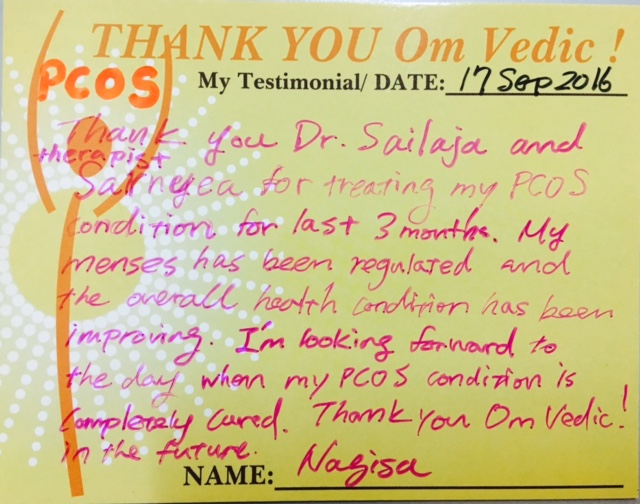 THANK YOU Om Vedic !
PCOS
My Testimonial/ DATE: 17 Sep 2016
Thank you Dr. Sailaja and
therapist
for treating my PCOS
condition for last 3 months. My
menses has been regulated and
the overall health condition has been
improving. I'm looking forward to
the day when my PCOS condition is
completely cured. Thank you Om Vedic!
in the future.
NAME: Nagisa